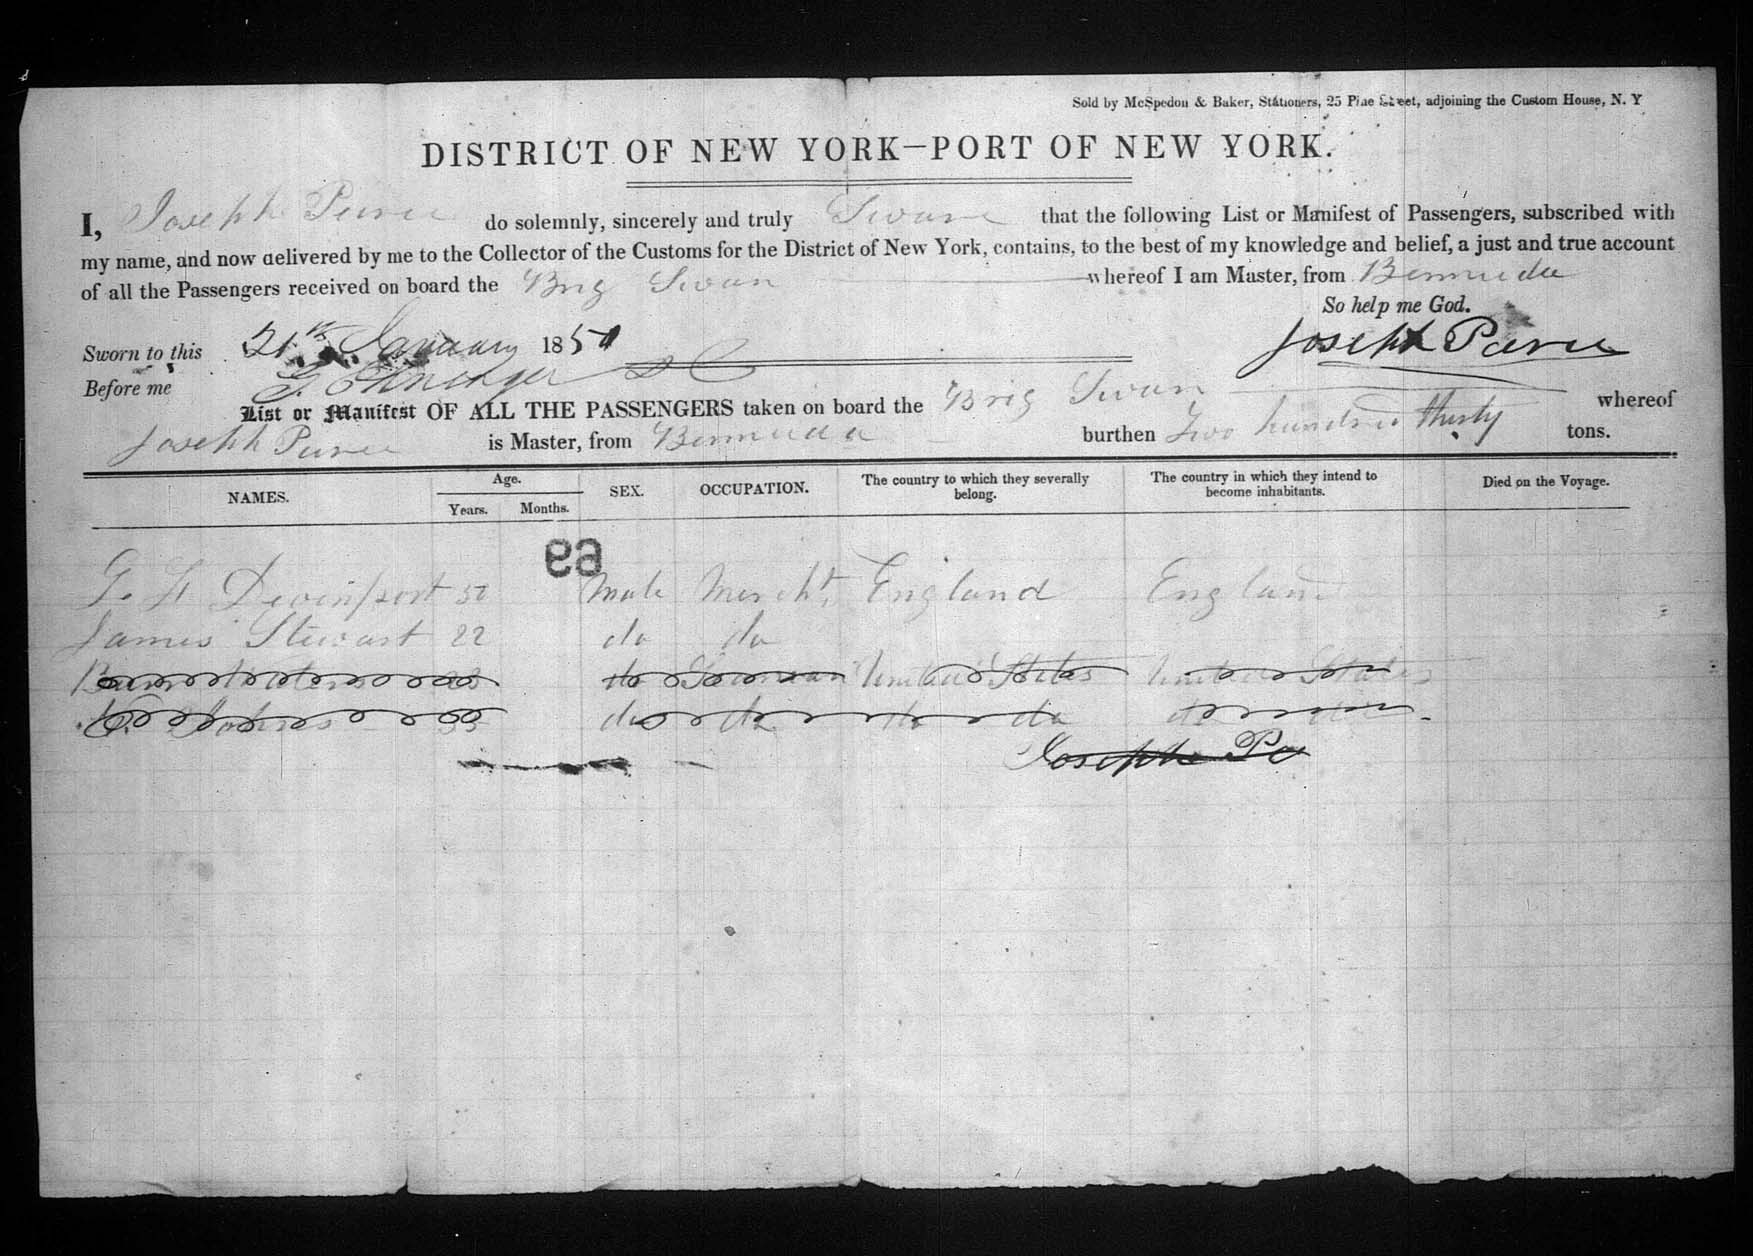 Sold by McSpedon & Baker, Stationers, 25 Pine Street, adjoining the Custom House, N. Y
DISTRICT OF NEW YORK—PORT OF NEW YORK.
I, Joseph Peirce do solemnly, sincerely and truly Swear that the following List or Manifest of Passengers, subscribed with
my name, and now delivered by me to the Collector of the Customs for the District of New York, contains, to the best of my knowledge and belief, a just and true account
of all the Passengers received on board the Brig Swan whereof I am Master, from Bermuda
So help me God.
Sworn to this 21st January 1851 Joseph Peirce
Before me
List or Manifest OF ALL THE PASSENGERS taken on board the Brig Swan whereof
Joseph Peirce is Master, from Bermuda burthen Two hundred thirty tons.
NAMES. Age. Years. Months. SEX. OCCUPATION. The country to which they severally belong. The country in which they intend to become inhabitants. Died on the Voyage.
69
Devinport 50 Male Mercht, England England
James Stewart 22 do do
do United States United States
do do do do do
Joseph Pe